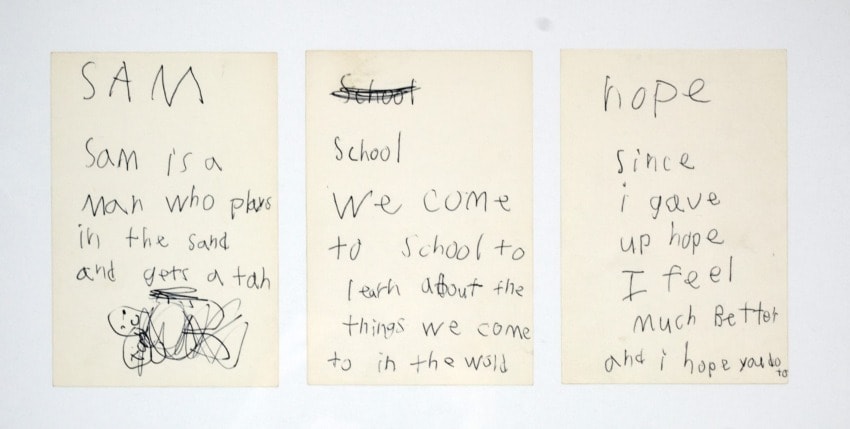 SAM
Sam is a
Man who plays
in the sand
and gets a tan
School
School
We come
to school to
learn about the
things we come
to in the world
hope
since
i gave
up hope
I feel
much Better
and i hope you do
to